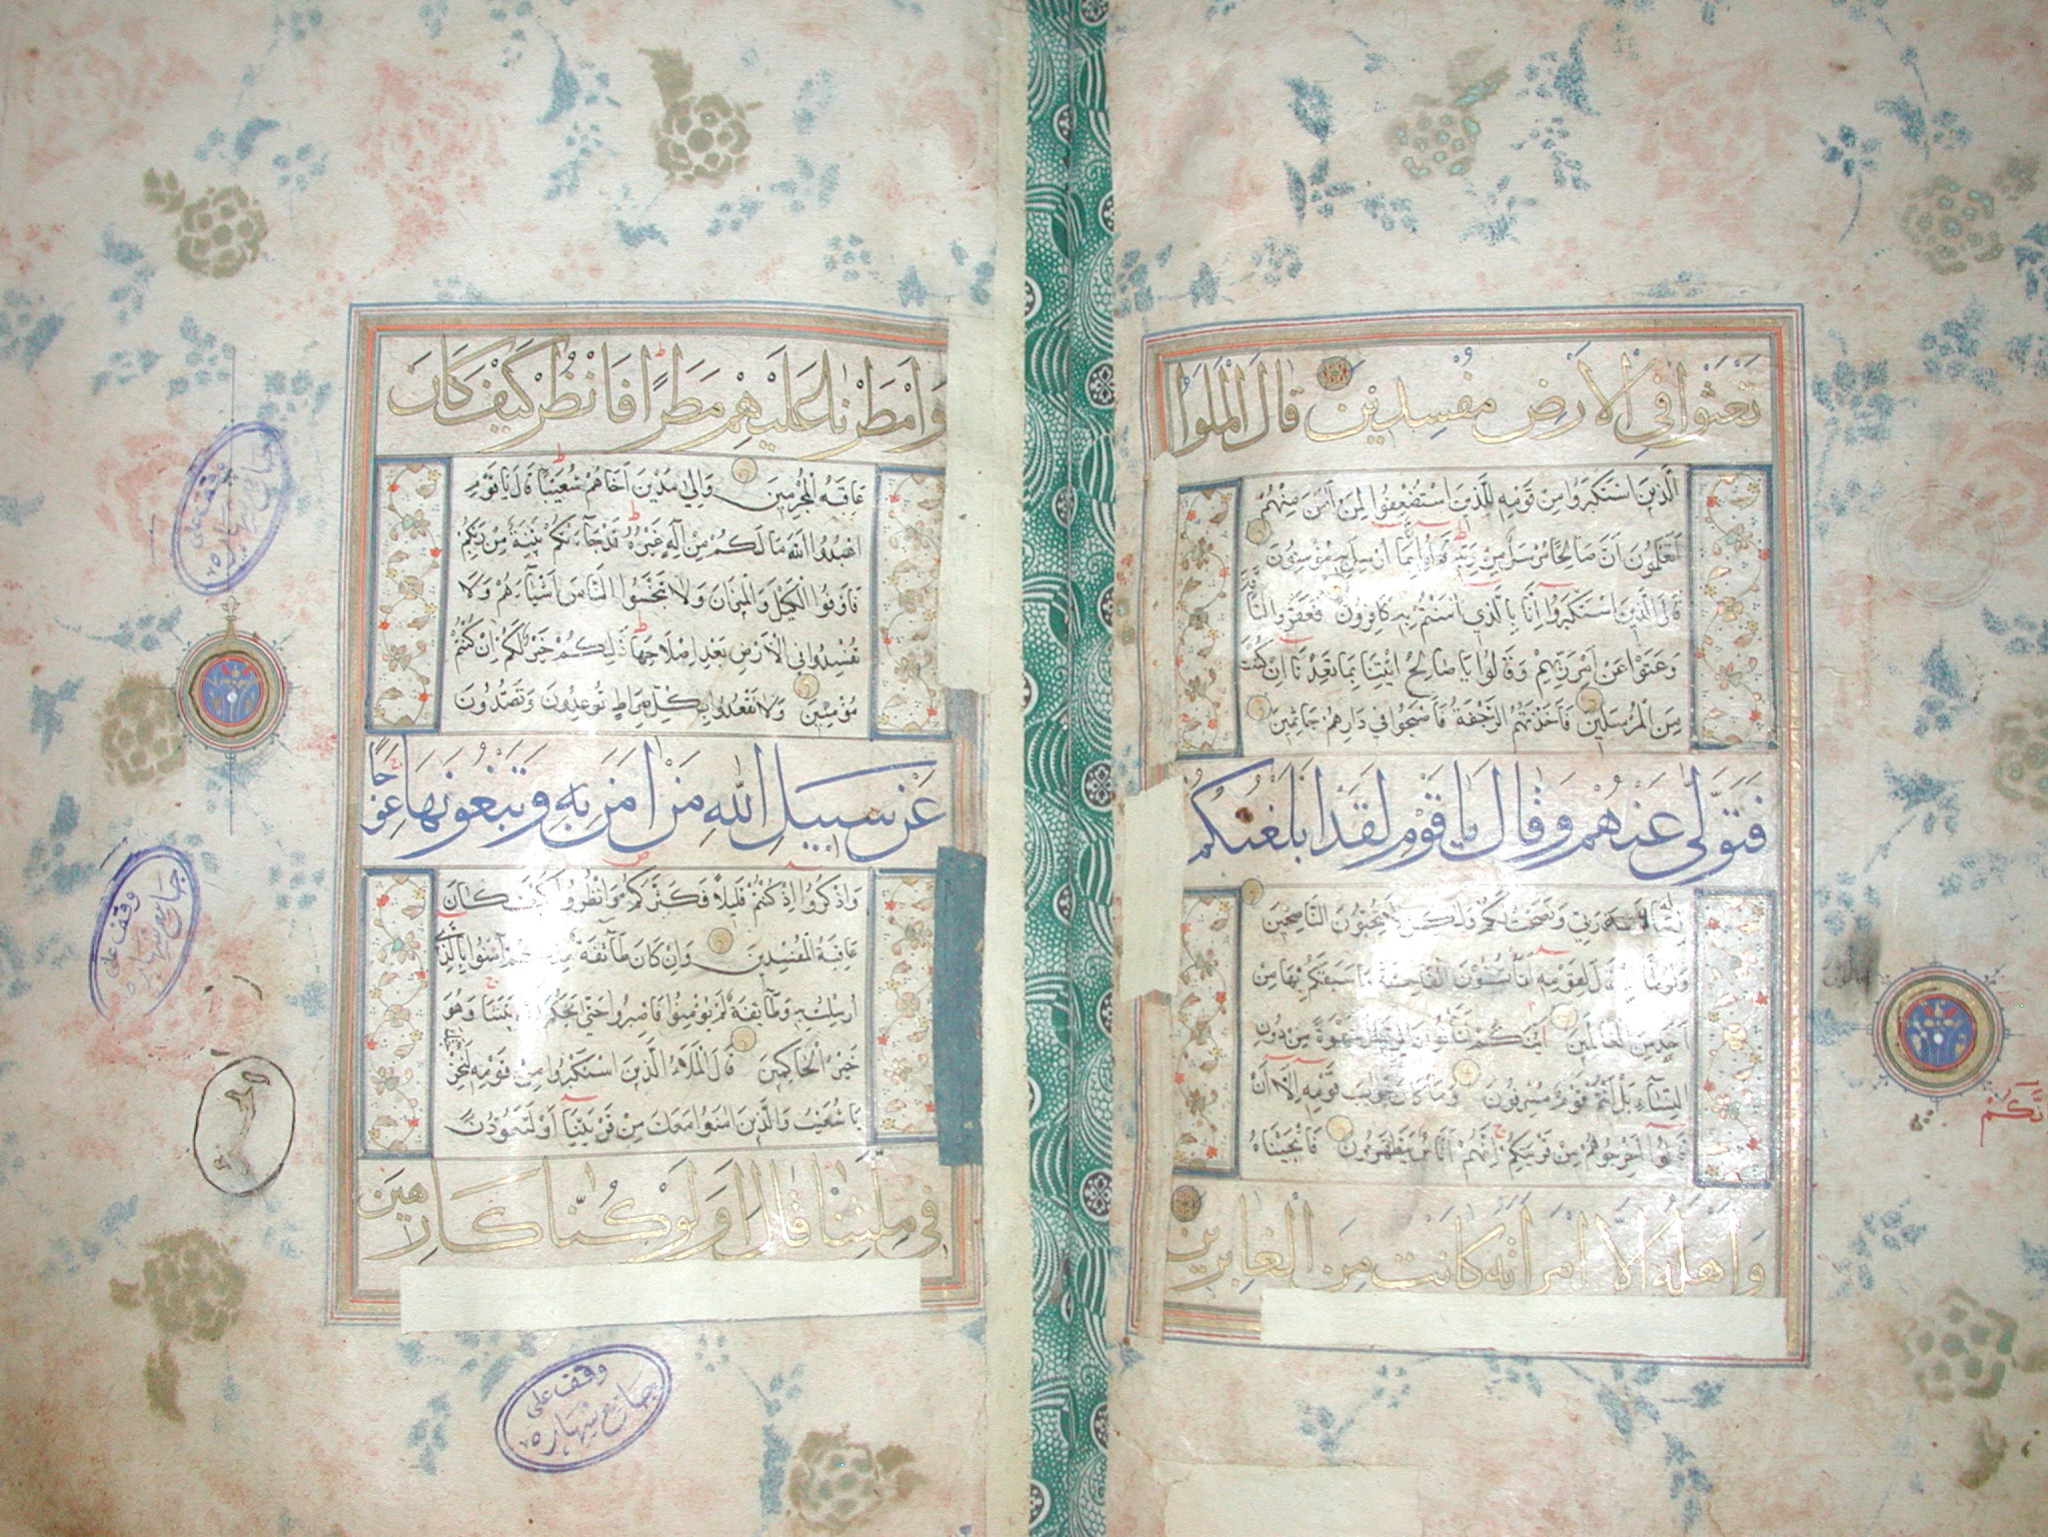 تَعْثَوْا فِي الْأَرْضِ مُفْسِدِينَ قَالَ الْمَلَؤُا
الَّذِينَ اسْتَكْبَرُوا مِنْ قَوْمِهِ لِلَّذِينَ اسْتُضْعِفُوا لِمَنْ آمَنَ مِنْهُمْ
أَتَعْلَمُونَ أَنَّ صَالِحًا مُرْسَلٌ مِنْ رَبِّهِ قَالُوا إِنَّا بِمَا أُرْسِلَ بِهِ مُؤْمِنُونَ
قَالَ الَّذِينَ اسْتَكْبَرُوا إِنَّا بِالَّذِي آمَنْتُمْ بِهِ كَافِرُونَ فَعَقَرُوا النَّاقَةَ
وَعَتَوْا عَنْ أَمْرِ رَبِّهِمْ وَقَالُوا يَا صَالِحُ ائْتِنَا بِمَا تَعِدُنَا إِنْ كُنْتَ
مِنَ الْمُرْسَلِينَ فَأَخَذَتْهُمُ الرَّجْفَةُ فَأَصْبَحُوا فِي دَارِهِمْ جَاثِمِينَ
فَتَوَلَّى عَنْهُمْ وَقَالَ يَا قَوْمِ لَقَدْ أَبْلَغْتُكُمْ
رِسَالَةَ رَبِّي وَنَصَحْتُ لَكُمْ وَلَكِنْ لَا تُحِبُّونَ النَّاصِحِينَ
وَلُوطًا إِذْ قَالَ لِقَوْمِهِ أَتَأْتُونَ الْفَاحِشَةَ مَا سَبَقَكُمْ بِهَا مِنْ
أَحَدٍ مِنَ الْعَالَمِينَ إِنَّكُمْ لَتَأْتُونَ الرِّجَالَ شَهْوَةً مِنْ دُونِ
النِّسَاءِ بَلْ أَنْتُمْ قَوْمٌ مُسْرِفُونَ وَمَا كَانَ جَوَابَ قَوْمِهِ إِلَّا أَنْ
قَالُوا أَخْرِجُوهُمْ مِنْ قَرْيَتِكُمْ إِنَّهُمْ أُنَاسٌ يَتَطَهَّرُونَ فَأَنْجَيْنَاهُ
وَأَهْلَهُ إِلَّا امْرَأَتَهُ كَانَتْ مِنَ الْغَابِرِينَ
وَأَمْطَرْنَا عَلَيْهِمْ مَطَرًا فَانْظُرْ كَيْفَ كَانَ
عَاقِبَةُ الْمُجْرِمِينَ وَإِلَى مَدْيَنَ أَخَاهُمْ شُعَيْبًا قَالَ يَا قَوْمِ
اعْبُدُوا اللَّهَ مَا لَكُمْ مِنْ إِلَهٍ غَيْرُهُ قَدْ جَاءَتْكُمْ بَيِّنَةٌ مِنْ رَبِّكُمْ
فَأَوْفُوا الْكَيْلَ وَالْمِيزَانَ وَلَا تَبْخَسُوا النَّاسَ أَشْيَاءَهُمْ وَلَا
تُفْسِدُوا فِي الْأَرْضِ بَعْدَ إِصْلَاحِهَا ذَلِكُمْ خَيْرٌ لَكُمْ إِنْ كُنْتُمْ
مُؤْمِنِينَ وَلَا تَقْعُدُوا بِكُلِّ صِرَاطٍ تُوعِدُونَ وَتَصُدُّونَ
عَنْ سَبِيلِ اللَّهِ مَنْ آمَنَ بِهِ وَتَبْغُونَهَا عِوَجًا
وَاذْكُرُوا إِذْ كُنْتُمْ قَلِيلًا فَكَثَّرَكُمْ وَانْظُرُوا كَيْفَ كَانَ
عَاقِبَةُ الْمُفْسِدِينَ وَإِنْ كَانَ طَائِفَةٌ مِنْكُمْ آمَنُوا بِالَّذِي
أُرْسِلْتُ بِهِ وَطَائِفَةٌ لَمْ يُؤْمِنُوا فَاصْبِرُوا حَتَّى يَحْكُمَ اللَّهُ بَيْنَنَا وَهُوَ
خَيْرُ الْحَاكِمِينَ قَالَ الْمَلَأُ الَّذِينَ اسْتَكْبَرُوا مِنْ قَوْمِهِ لَنُخْرِجَنَّكَ
يَا شُعَيْبُ وَالَّذِينَ آمَنُوا مَعَكَ مِنْ قَرْيَتِنَا أَوْ لَتَعُودُنَّ
فِي مِلَّتِنَا قَالَ أَوَلَوْ كُنَّا كَارِهِينَ
وقف على
جامع
وقف على
جامع
وقف على
جامع